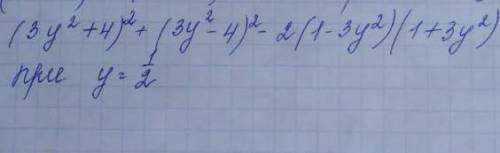 (3y²+4)²+(3y²-4)²-2(1-3y²)(1+3y²)
при y=1/2